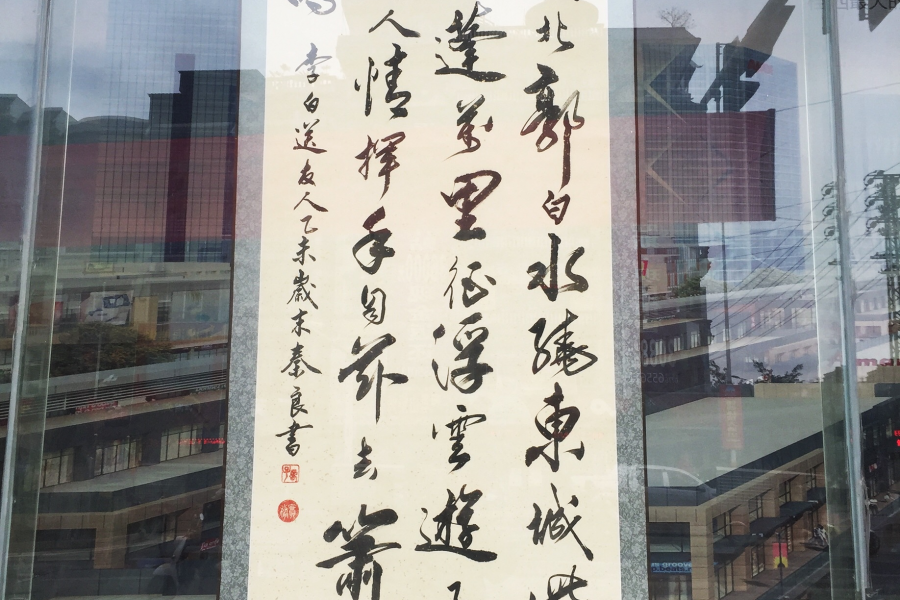 北郭白水繞東城
蓬萬里征浮雲遊
人情揮手自茲去蕭
李白送友人乙未歲末秦良書